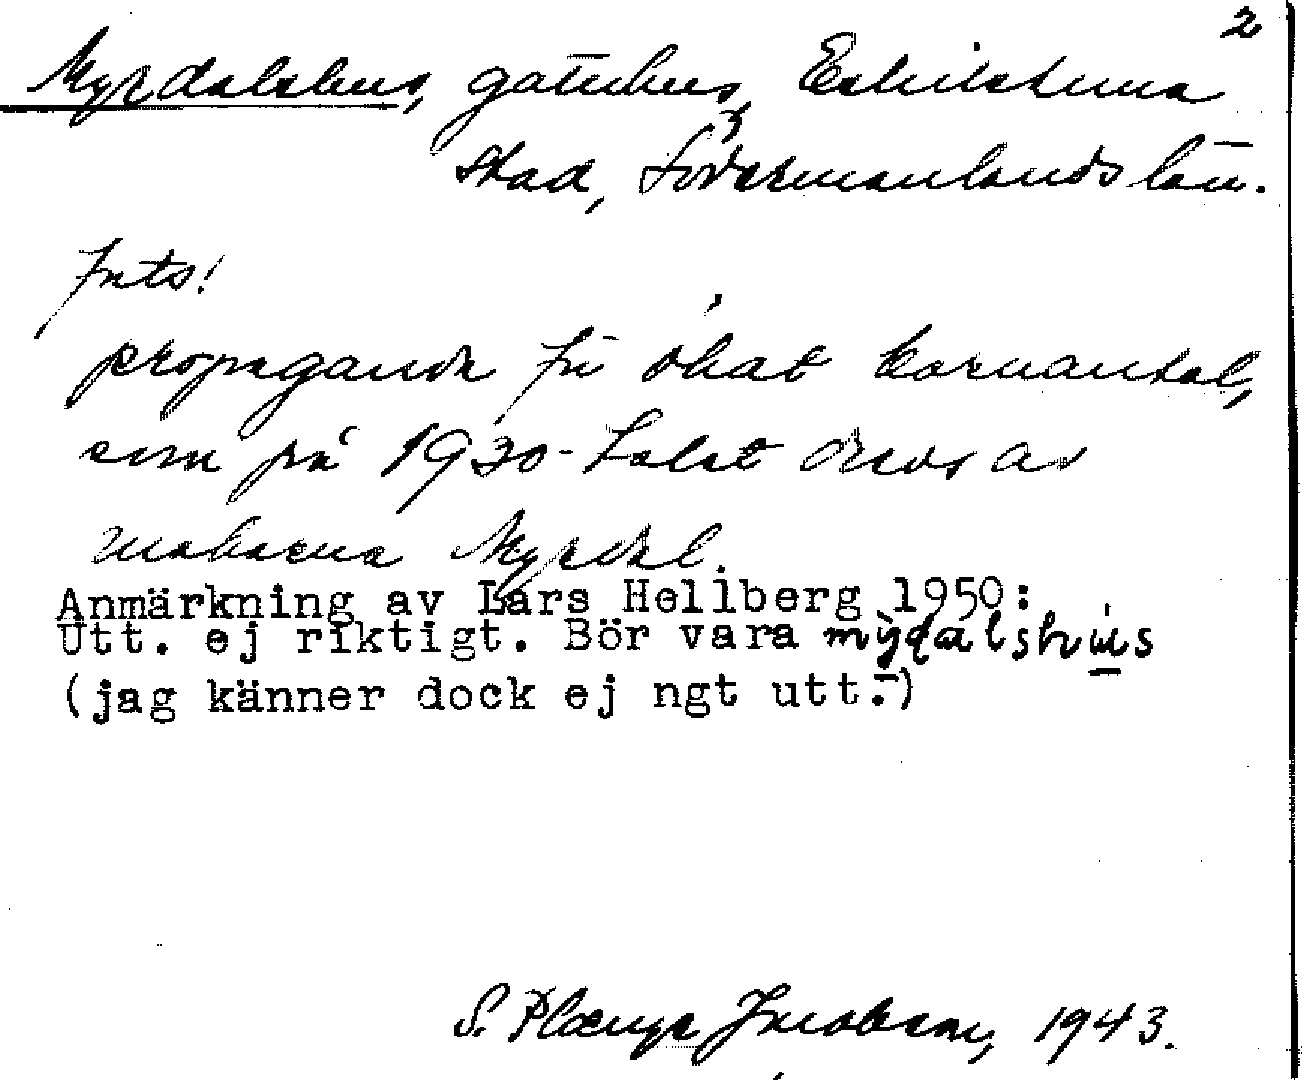 2
Myrdalshus, gatuhus, Eskilstuna
stad, Södermanlands län.
Forts!
propaganda för ökat barnantal,
som på 1930-talet drevs av
makarna Myrdal.
Anmärkning av Lars Hellberg 1950:
Utt. ej riktigt. Bör vara mỳdalshu̲s
(jag känner dock ej ngt utt.)
S. Jacobson, 1943.